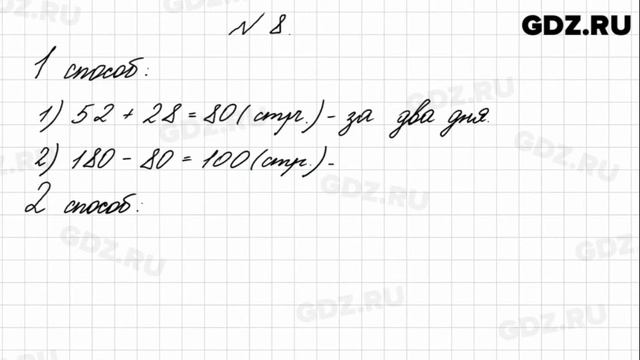 GDZ.RU
N 8.
1 способ:
1) 52 + 28 = 80 (стр.) - за два дня.
2) 180 - 80 = 100 (стр.) -
2 способ:
GDZ.RU
GDZ.RU
GDZ.RU
GDZ.RU
GDZ.RU
GDZ.RU
GDZ.RU
GDZ.RU